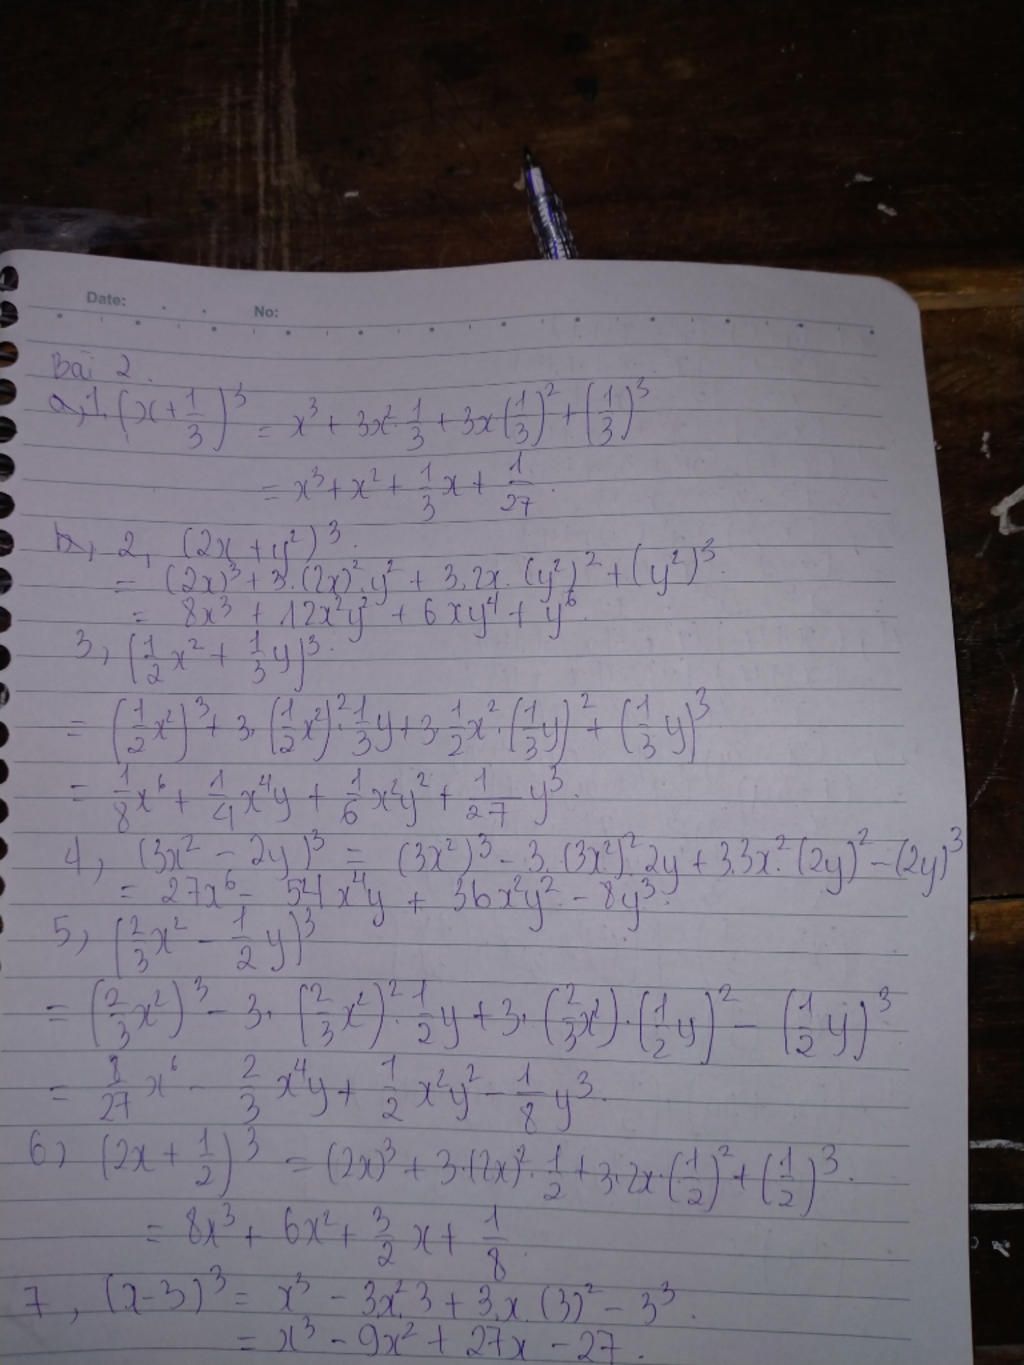 Date: No:
Bài 2.
a, 1, (x + 1/3)³ = x³ + 3x² · 1/3 + 3x (1/3)² + (1/3)³
= x³ + x² + 1/3 x + 1/27.
2, (2x + y²)³.
= (2x)³ + 3.(2x)².y² + 3.2x.(y²)² + (y²)³.
= 8x³ + 12x²y² + 6xy⁴ + y⁶.
3, (1/2 x² + 1/3 y)³.
= (1/2 x²)³ + 3.(1/2 x²)² · 1/3 y + 3.1/2 x² · (1/3 y)² + (1/3 y)³
= 1/8 x⁶ + 1/4 x⁴y + 1/6 x²y² + 1/27 y³.
4, (3x² - 2y)³ = (3x²)³ - 3.(3x²)².2y + 3.3x².(2y)² - (2y)³
= 27x⁶ - 54x⁴y + 36x²y² - 8y³.
5, (2/3 x² - 1/2 y)³
= (2/3 x²)³ - 3.(2/3 x²)² · 1/2 y + 3.(2/3 x²).(1/2 y)² - (1/2 y)³
= 8/27 x⁶ - 2/3 x⁴y + 1/2 x²y² - 1/8 y³.
6) (2x + 1/2)³ = (2x)³ + 3.(2x)² · 1/2 + 3.2x.(1/2)² + (1/2)³.
= 8x³ + 6x² + 3/2 x + 1/8.
7, (x-3)³ = x³ - 3x².3 + 3.x.(3)² - 3³.
= x³ - 9x² + 27x - 27.